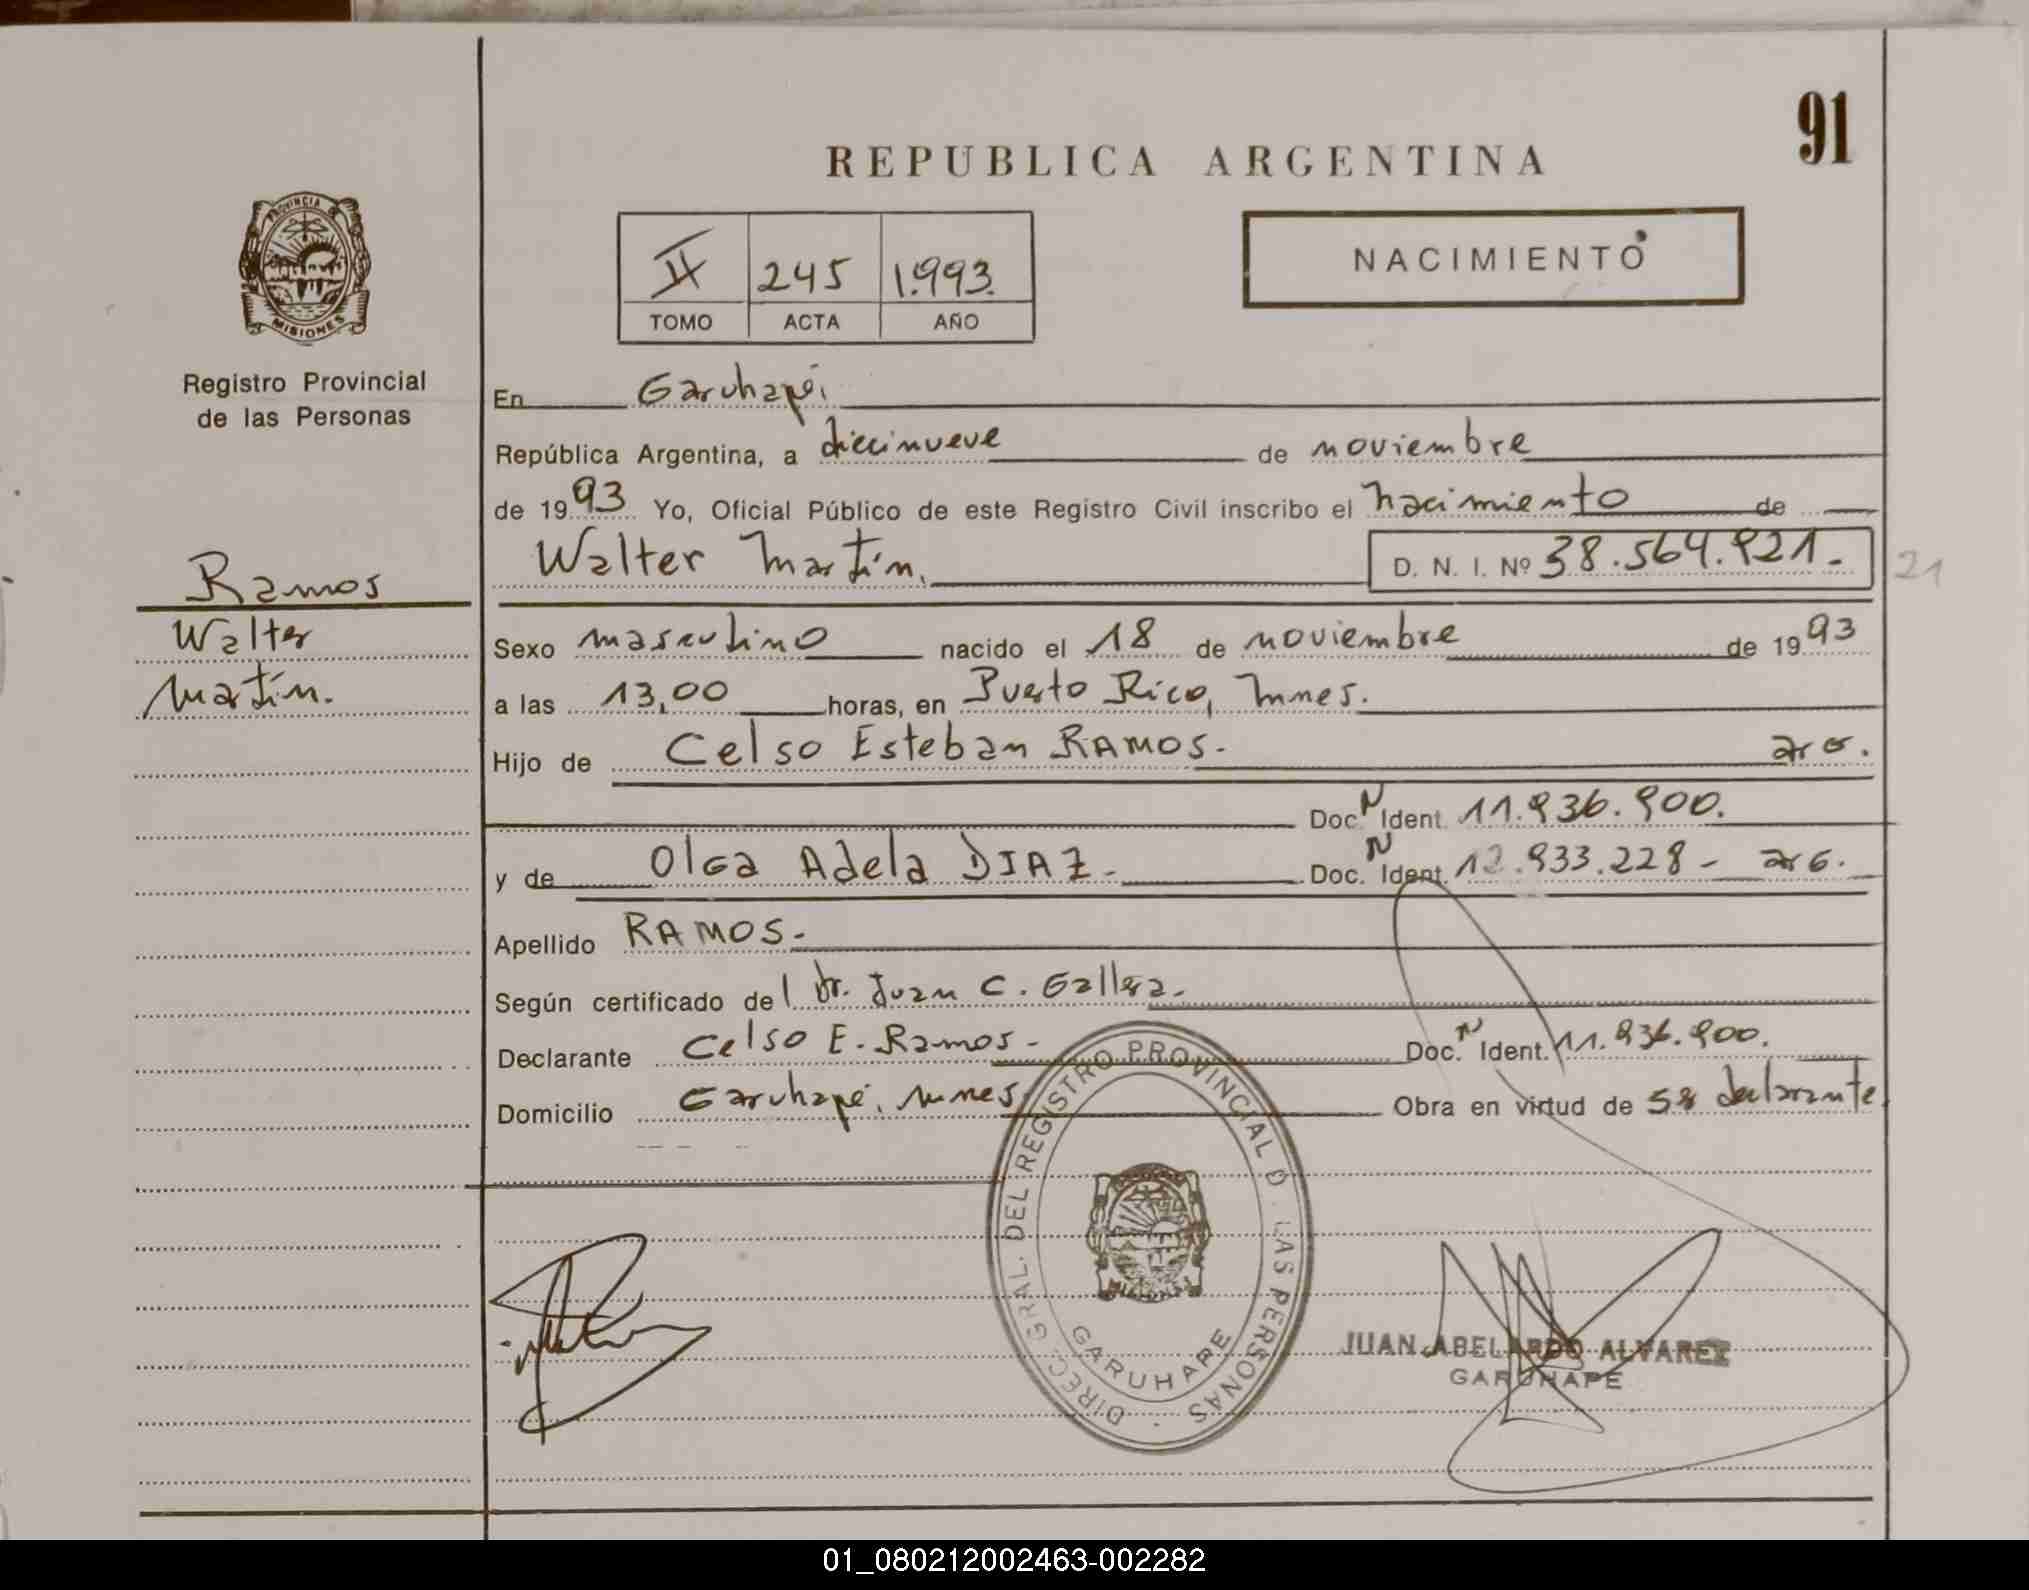 91
REPUBLICA ARGENTINA
PROVINCIA DE
MISIONES
Registro Provincial
de las Personas
II 245 1.993.
TOMO ACTA AÑO
NACIMIENTO
En Garuhapé,
República Argentina, a diecinueve de noviembre
de 1993 Yo, Oficial Público de este Registro Civil inscribo el nacimiento de
Walter Martín. D. N. I. Nº 38.564.921.-
21
Ramos
Walter
Martín.
Sexo masculino nacido el 18 de noviembre de 1993
a las 13,00 horas, en Puerto Rico, Mnes.
Hijo de Celso Esteban RAMOS.- arg.
Doc. N Ident. 11.936.900.
y de Olga Adela DIAZ.- Doc. N Ident. 12.933.228- arg.
Apellido RAMOS.-
Según certificado del Dr. Juan C. Gallera.-
Declarante Celso E. Ramos.- Doc. N Ident. 11.936.900.
Domicilio Garuhapé, Mnes Obra en virtud de ser declarante
DIREC. GRAL. DEL REGISTRO PROVINCIAL D. LAS PERSONAS
MISIONES
GARUHAPE
JUAN ABELARDO ALVAREZ
GARUHAPE
01_080212002463-002282